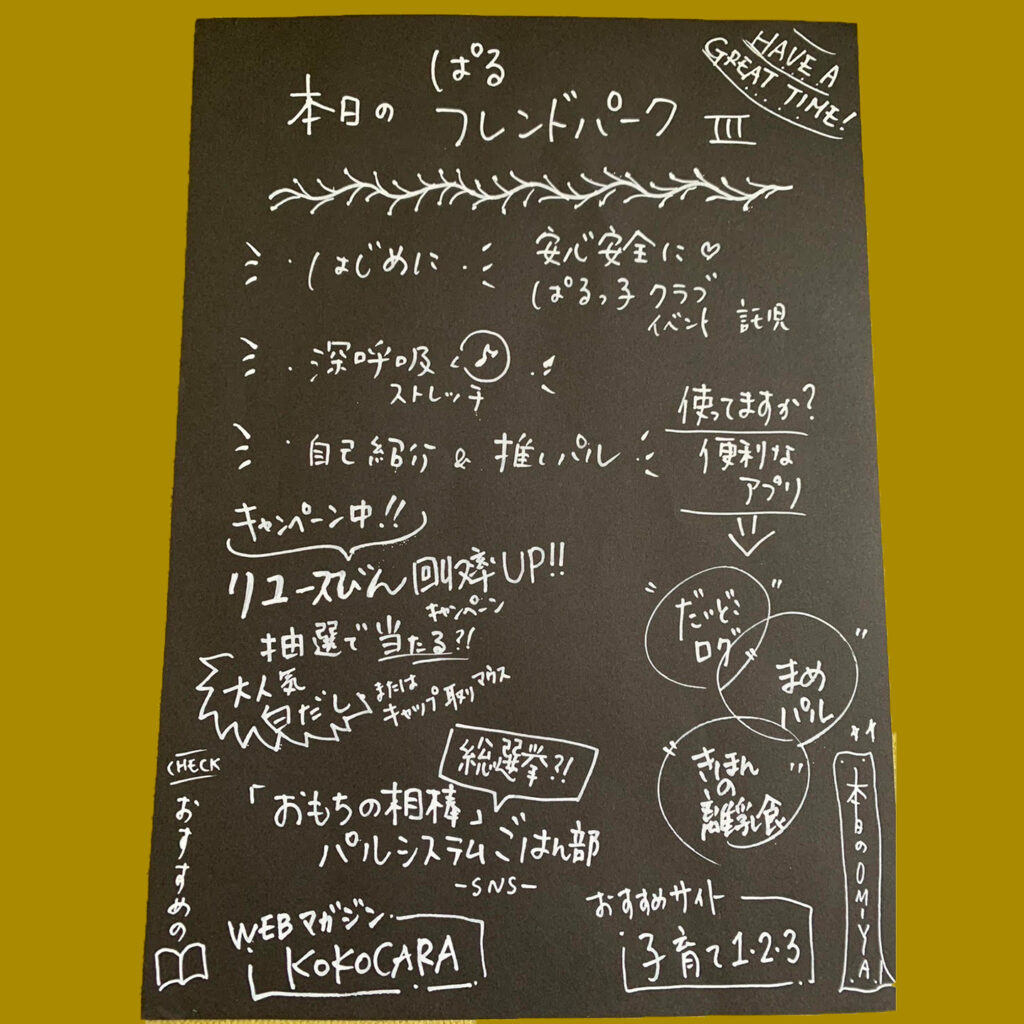 HAVE A
GREAT TIME!
ぱる
本日の フレンドパーク III
・はじめに・
安心安全に♡
ぱるっ子クラブ
イベント 託児
・深呼吸 & ♪・
ストレッチ
・自己紹介 & 推しパル
使ってますか?
便利な
アプリ
キャンペーン中!!
リユースびん回収率UP!!
キャンペーン
抽選で当たる?!
大人気
白だし または
キャップ取りマウス
"だいどこ
ログ"
"まめ
パル"
"きほん
の
離乳食"
総選挙?!
「おもちの相棒」
パルシステムごはん部
-SNS-
CHECK
おすすめの
WEBマガジン
KOKOCARA
おすすめサイト
子育て1・2・3
本日のOMIYA